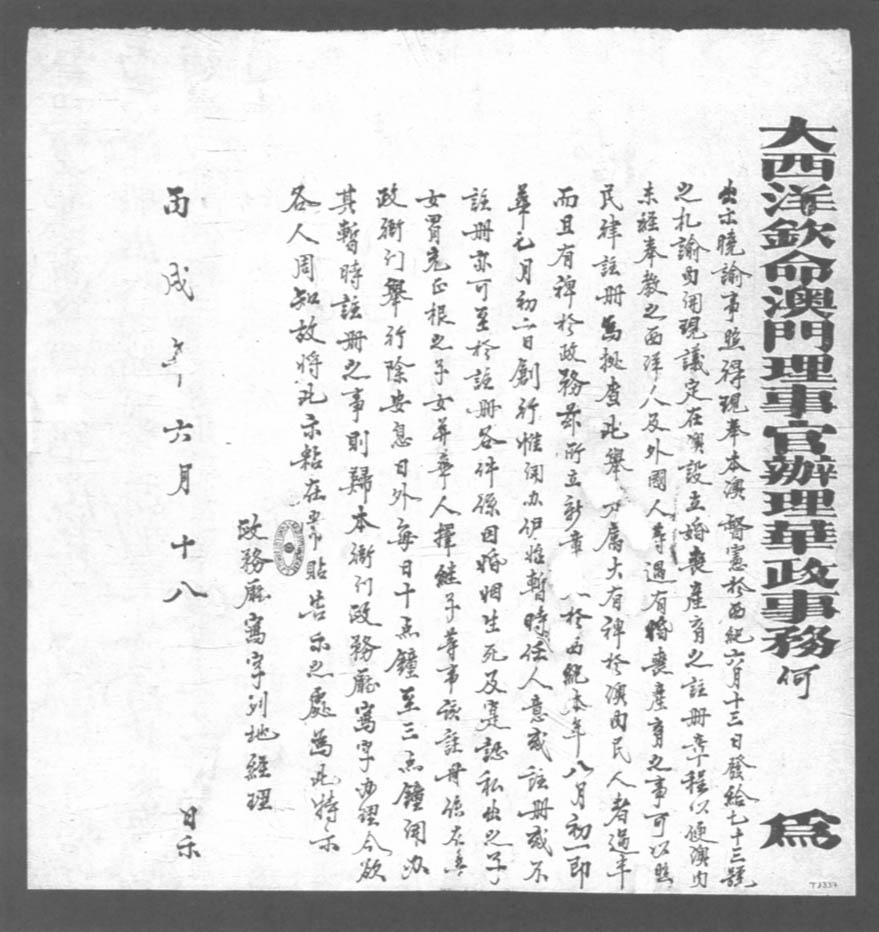 大西洋欽命澳門理事官辦理華政事務何 為
出示曉諭事照得現奉本澳 督憲於西紀六月十三日發給七十三號
之札諭內開現議定在澳設立婚喪產育之註冊章程以便澳內
未經奉教之西洋人及外國人等遇有婚喪產育之事可以照
民律註冊為挑查此舉乃屬大有裨於澳內民人者過半
而且有裨於政務茲所立新章 於西紀本年八月初一即
華七月初二日創行惟開办伊始暫時任人意或註冊或不
註冊亦可至於註冊各件係因婚姻生死及定認私出之子
女冒充正根之子女並華人擇继子等事該註冊係在華
政衙門舉行除安息日外每日十点鐘至三点鐘開办
其暫時註冊之事則歸本衙門政務廳寫字办理今欲
各人周知故將此示粘在常貼告示之處為此特示
政務廳寫字列地經理
丙戌年六月十八 日示
TJ337